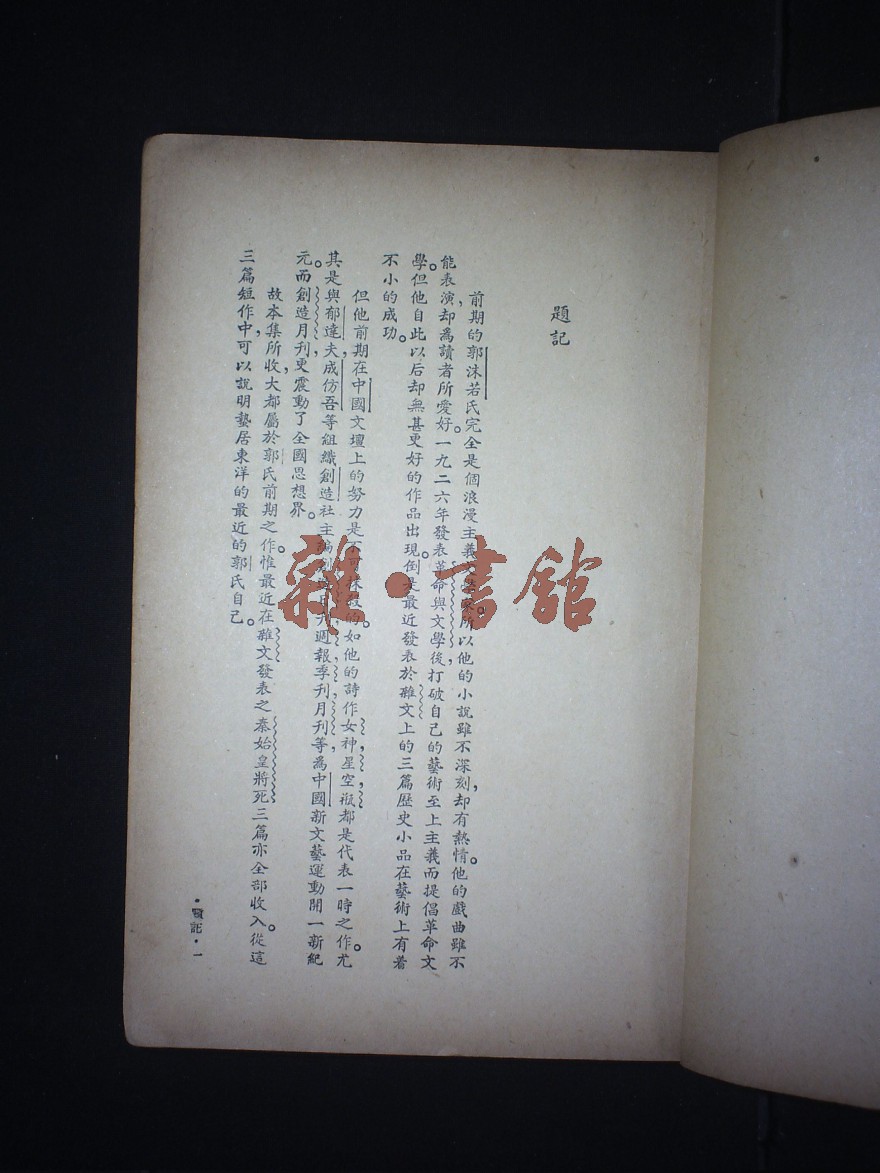 題記
前期的郭沫若氏完全是個浪漫主義文學家。所以他的小說雖不深刻，却有熱情。他的戲曲雖不
能表演，却為讀者所愛好。一九二六年發表革命與文學後，打破自己的藝術至上主義而提倡革命文
學。但他自此以后却無甚更好的作品出現。倒是最近發表於雜文上的三篇歷史小品在藝術上有着
不小的成功。
但他前期在中國文壇上的努力是不可抹殺的。如他的詩作女神，星空，瓶都是代表一時之作。尤
其是與郁達夫，成仿吾等組織創造社主編創造日刊，週報，季刊，月刊等，為中國新文藝運動開一新紀
元。而創造月刊，更震動了全國思想界。
故本集所收，大都屬於郭氏前期之作。惟最近在雜文發表之秦始皇將死三篇亦全部收入。從這
三篇短作中，可以說明藝居東洋的最近的郭氏自己。
•題記•一
雜•書館